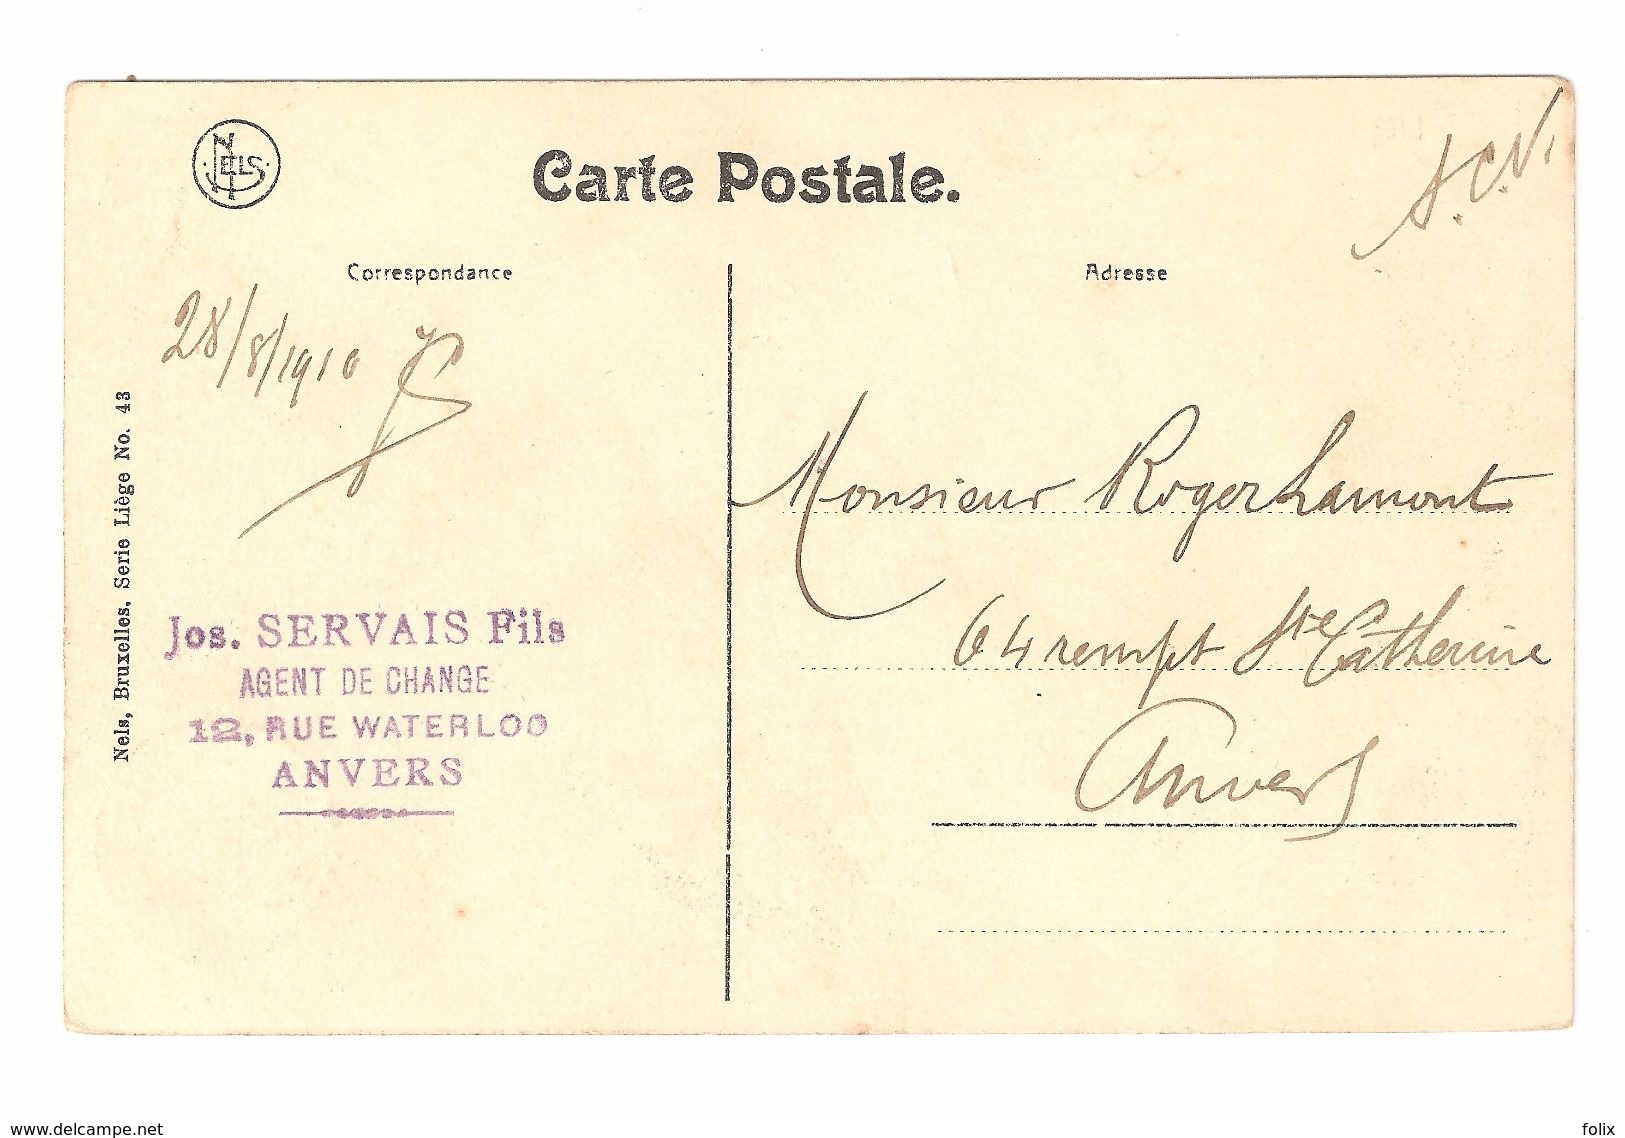 NELS
Carte Postale.
A.C.V.
Correspondance
Adresse
28/8/1910
Monsieur Roger Lamont
64 rempt Ste Catherine
Anvers
Jos. SERVAIS Fils
AGENT DE CHANGE
12, RUE WATERLOO
ANVERS
Nels, Bruxelles, Serie Liège No. 43
www.delcampe.net
folix